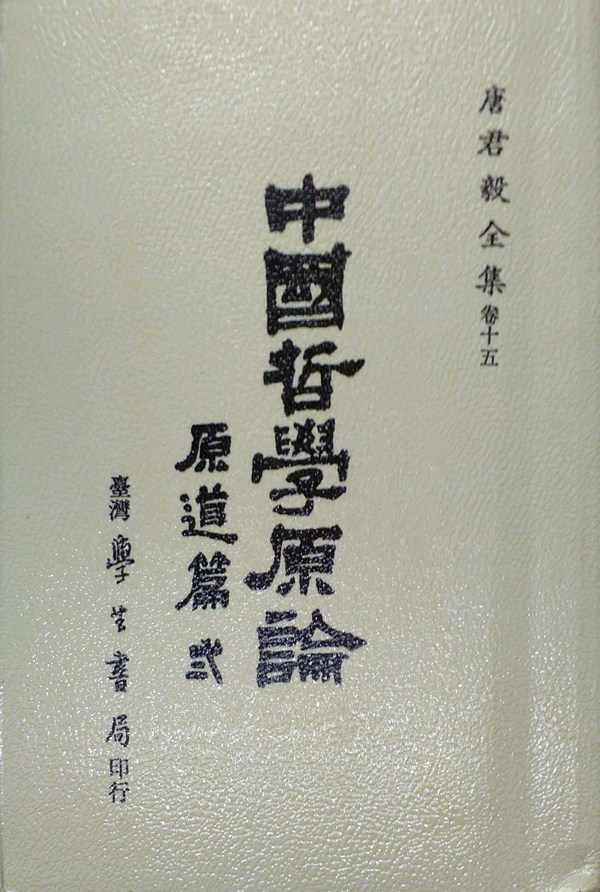 唐君毅全集卷十五
中國哲學原論
原道篇 弍
臺灣學生書局印行